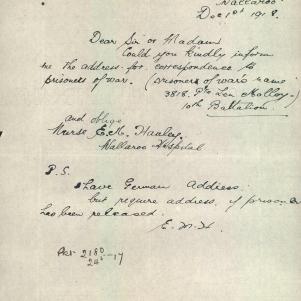 Wallaroo
Dec 1st 1918.
Dear Sir or Madam
Could you kindly inform
me the address for correspondence to
prisoners of war. (prisoners of war's name
3818. Pte Len Molloy)
10th Battalion.
and oblige
Nurse E. M. Hanley.
Wallaroo Hospital
P.S.
I have German Address.
but require address, if prisoner
has been released.
E. M. H.
2180
24-5-17